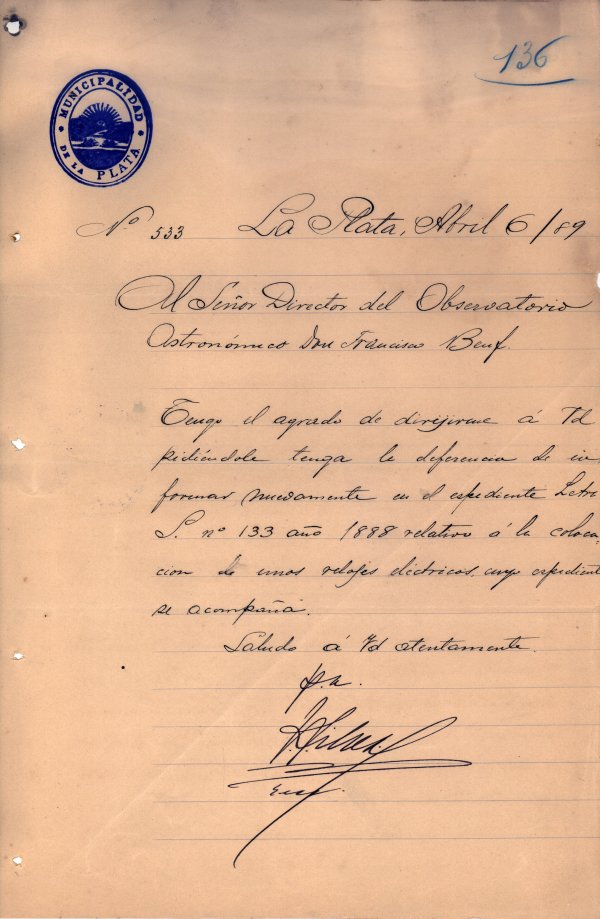 136
MUNICIPALIDAD
DE LA PLATA
Nº 533 La Plata, Abril 6/89
Al Señor Director del Observatorio
Astronómico Don Francisco Beuf.
Tengo el agrado de dirijirme á Vd
pidiéndole tenga la deferencia de in
formar nuevamente en el espediente Letra
S. nº 133 año 1888 relativo á la coloca
cion de unos relojes eléctricos, cuyo espediente
se acompaña.
Saludo á Vd atentamente.
p.a.